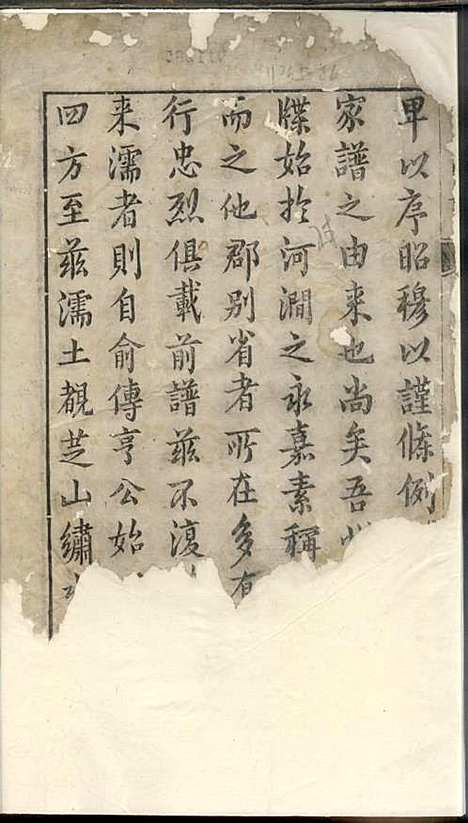 卑以序昭穆以謹條例
家譜之由来也尚矣吾
牒始扵河澗之永嘉素稱
而之他郡别省者所在多有
行忠烈俱載前譜兹不復
来濡者則自俞傳亨公始
四方至兹濡土覩芝山繡